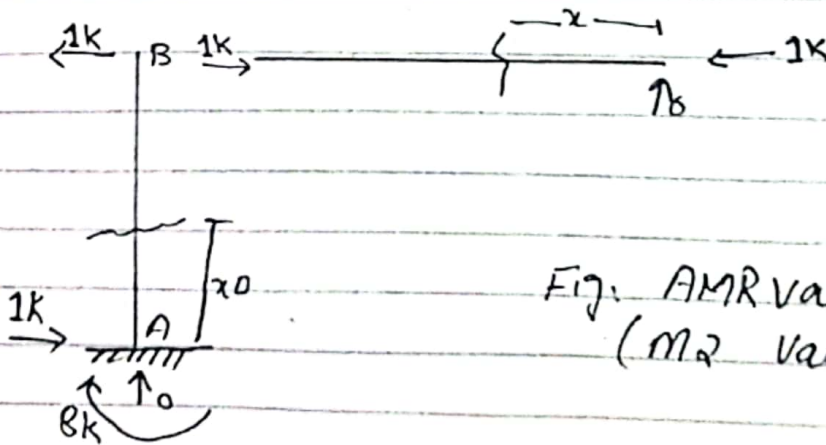 x
1K B 1K 1K
0
x0
1K A
0
8K
Fig: AMR va
(m2 va